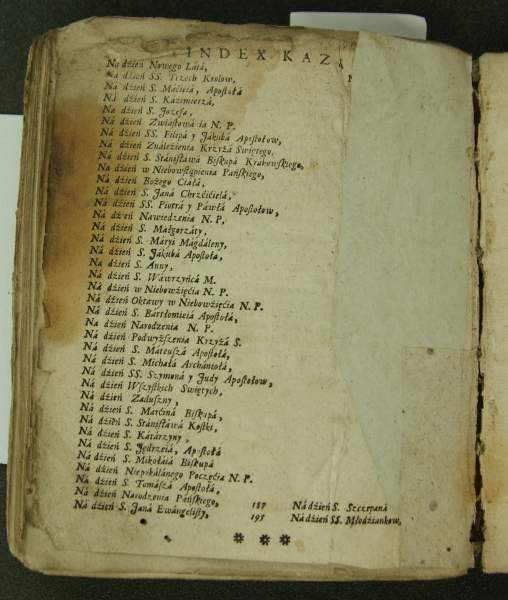 INDEX KAZ
Na dzień Nowego Látá,
Na dzień SS. Trzech Krolow,
Na dzień S. Máćieiá, Apostołá
Ná dzień S. Kázimierzá,
Na dzień S. Jozefa,
Ná dzień Zwiástowánia N. P.
Ná dzień SS. Filipá y Jákubá Apostołow,
Ná dzień Ználeźienia Krzyżá Swiętego,
Ná dzień S. Stánisłáwá Biskupá Krakowskiego,
Na dzień w Niebowstąpienia Páńskiego,
Ná dzień Bożego Ciáłá,
Ná dzień S. Janá Chrzćićielá,
Ná dzień SS. Piotrá y Páwłá Apostołow,
Ná dzień Nawiedzenia N. P.
Ná dzień S. Máłgorzáty,
Ná dzień S. Máryi Mágdáleny,
Ná dzień S. Jákubá Apostołá,
Ná dzień S. Anny,
Ná dzień S. Wáwrzyńcá M.
Ná dzień w Niebowźięćia N. P.
Ná dzień Oktawy w Niebowźięćia N. P.
Ná dzień S. Bártłomieiá Apostołá,
Na dzień Narodzenia N. P.
Ná dzień Podwyższenia Krzyżá S.
Ná dzień S. Mateuszá Apostołá,
Ná dzień S. Michałá Archániołá,
Ná dzień SS. Szymoná y Judy Apostołow,
Ná dzień Wszystkich Swiętych,
Ná dzień Zaduszny,
Ná dzień S. Marćiná Biskupá,
Ná dzień S. Stánisłáwá Kostki,
Ná dzień S. Kátárzyny,
Ná dzień S. Jędrzeiá, Apostołá
Ná dzień S. Mikołáiá Biskupá
Ná dzień Niepokálánego Poczęćia N. P.
Ná dzień S. Tomászá Apostołá,
Ná dzień Narodzenia Páńskiego, 187 Ná dzień S. Szczepaná
Ná dzień S. Janá Ewángelisty, 195 Ná dzień SS. Młodziankow,
* * *